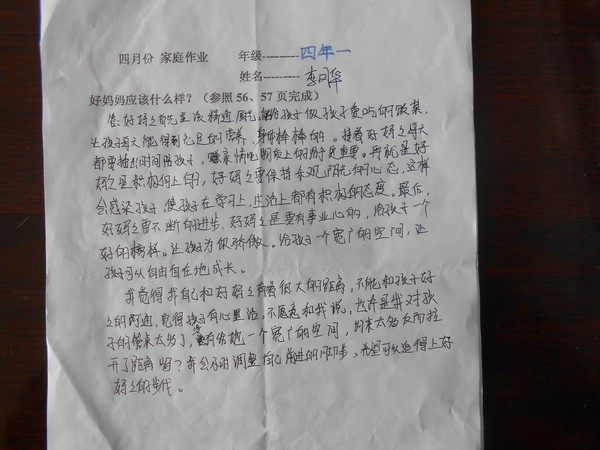 四月份 家庭作业 年级---------- 四年一
姓名--------- 李
好妈妈应该什么样？（参照56、57页完成）
答：好妈妈首先应该精通厨艺，能给孩子做孩子爱吃的饭菜，
让孩子每天能得到充足的营养，身体棒棒的。接着好妈妈每天
都要抽出时间陪孩子，。再就是好
妈妈是积极向上的，好妈妈要保持乐观阳光的心态，这样
会感染孩子，使孩子在学习上，生活上都有积极的态度。最后，
好妈妈要不断的进步，好妈妈是要有事业心的，给孩子一个
好的榜样。让孩子为你骄傲。给孩子一个宽广的空间，让
孩子可以自由自在地成长。
我觉得我自己和好妈妈有着很大的距离，不能和孩子好
好的沟通，觉得孩子有心里话，不愿意和我说，也许是我对孩
子的管束太多了，没有给她一个宽广的空间，约束太多反而拉
开了距离吧？我会及时调整自己前进的脚步，希望可以追得上好
妈妈的步伐。